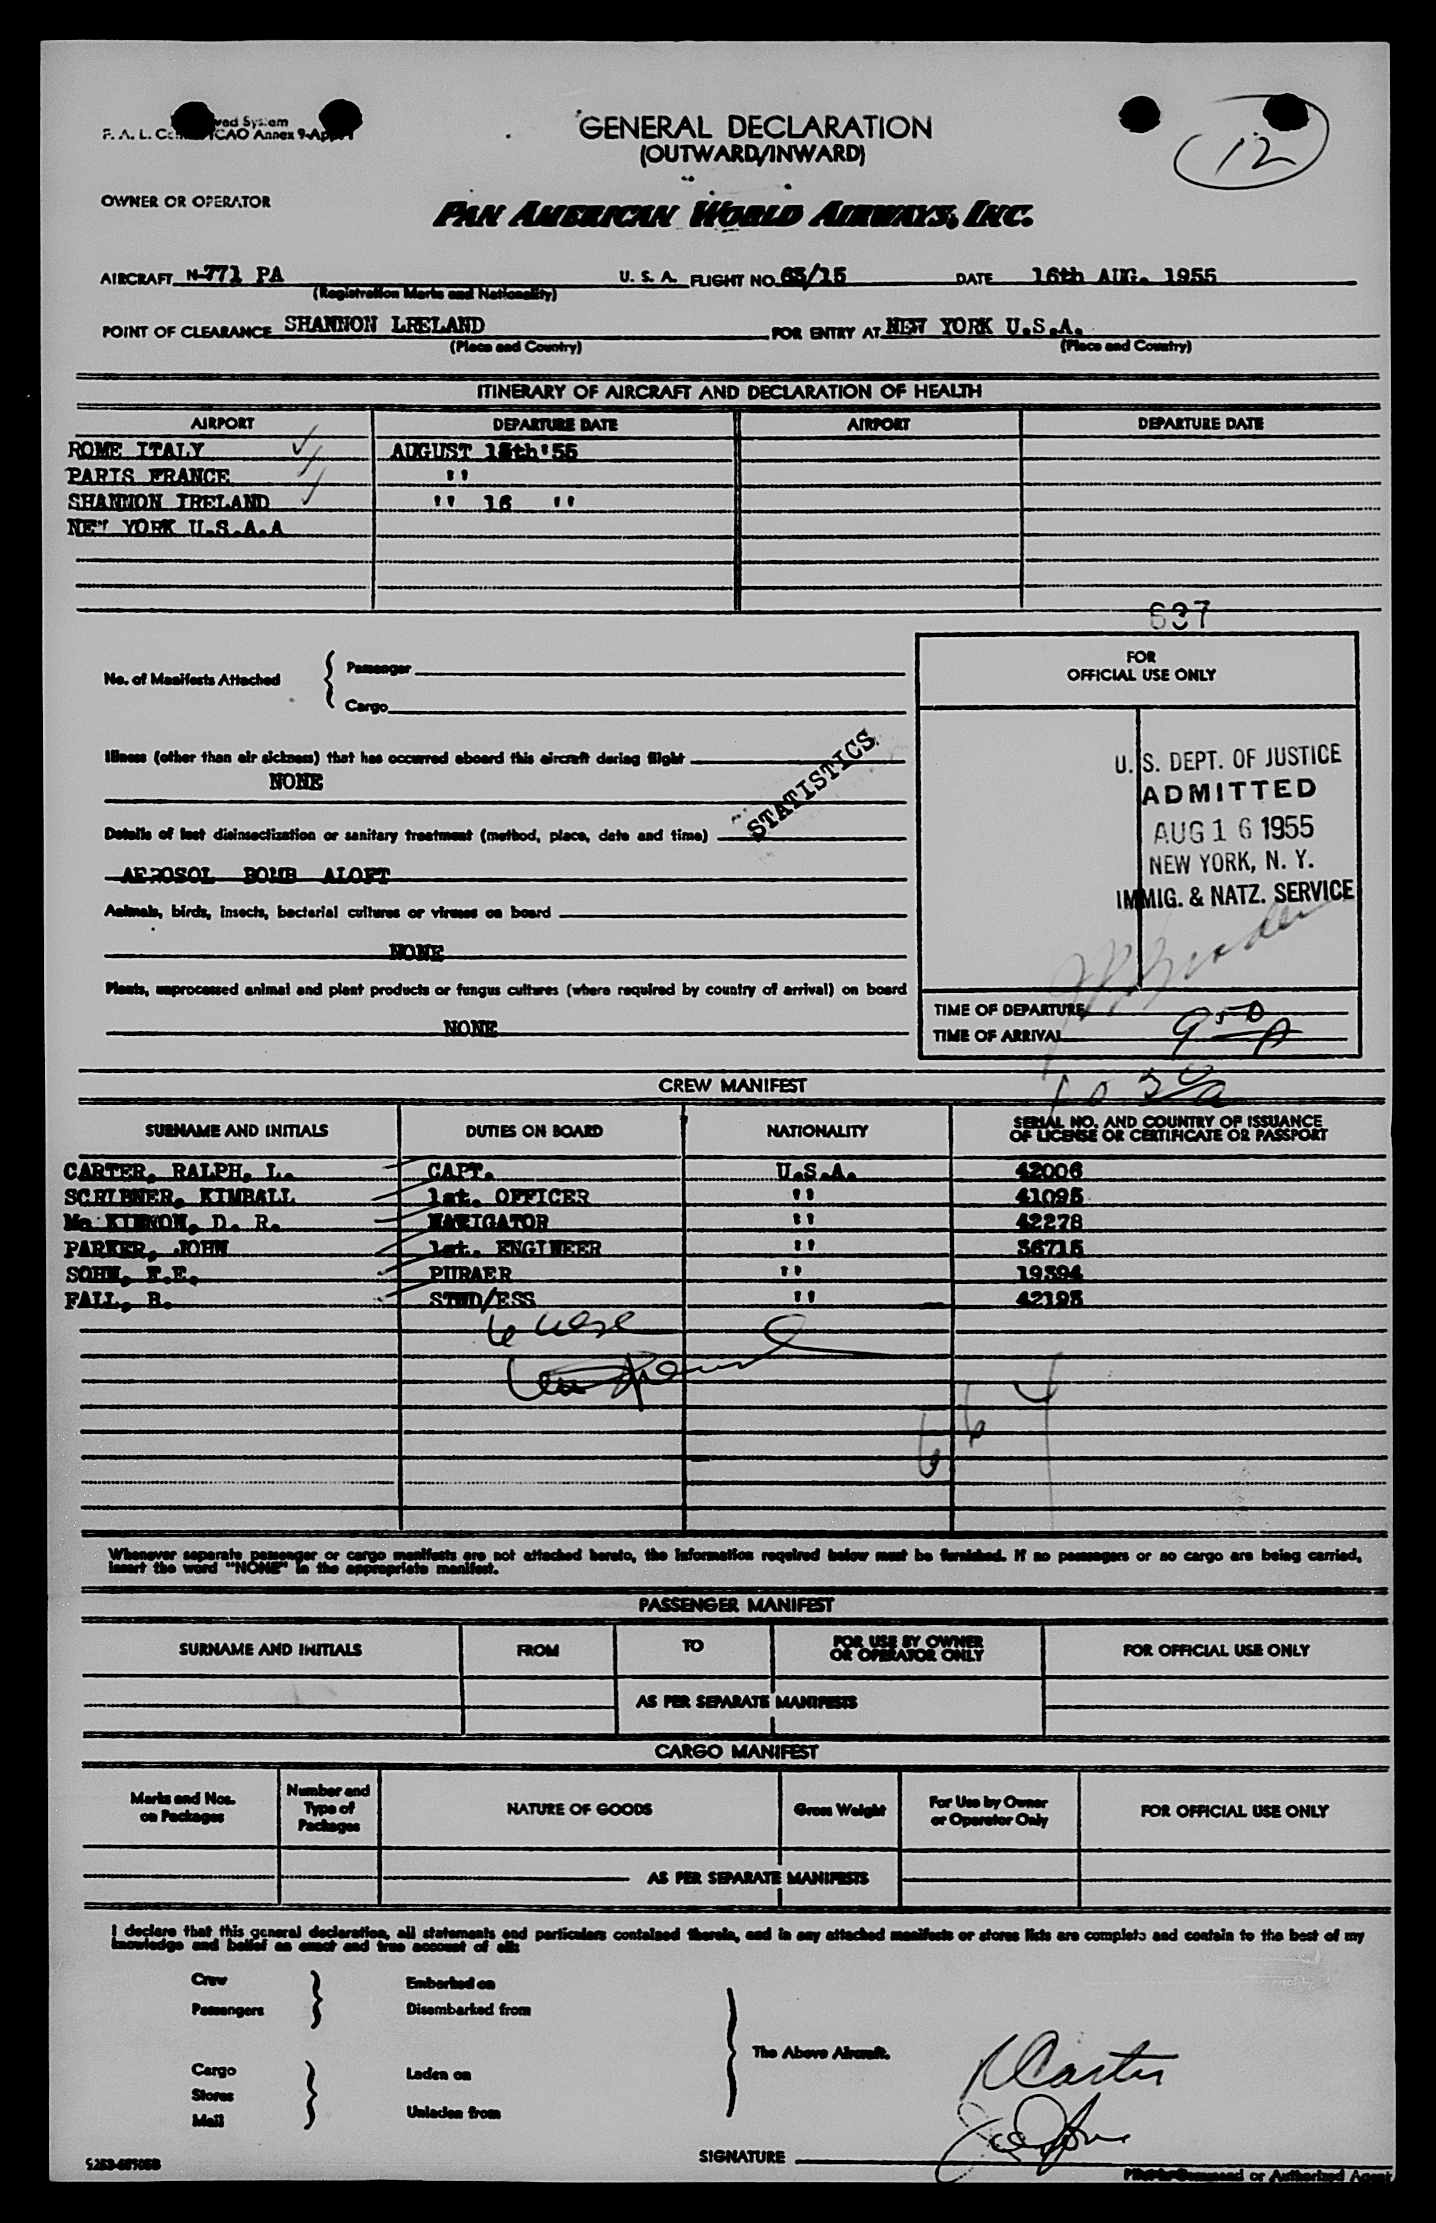 GENERAL DECLARATION
(OUTWARD/INWARD)
12
OWNER OR OPERATOR
PAN AMERICAN WORLD AIRWAYS, INC.
AIRCRAFT N-771 PA U. S. A. FLIGHT NO. 63/15 DATE 16th AUG. 1955
(Registration Marks and Nationality)
POINT OF CLEARANCE SHANNON LRELAND FOR ENTRY AT NEW YORK U.S.A.
(Place and Country) (Place and Country)
ITINERARY OF AIRCRAFT AND DECLARATION OF HEALTH
AIRPORT DEPARTURE DATE AIRPORT DEPARTURE DATE
ROME ITALY AUGUST 15th'55
PARIS FRANCE ''
SHANNON IRELAND '' 16 ''
NEW YORK U.S.A.A
637
FOR
OFFICIAL USE ONLY
No. of Manifests Attached
Passenger
Cargo
Illness (other than air sickness) that has occurred aboard this aircraft during flight
NONE
STATISTICS
Details of last disinsectization or sanitary treatment (method, place, date and time)
AEROSOL BOMB ALOFT
Animals, birds, insects, bacterial cultures or viruses on board
NONE
Plants, unprocessed animal and plant products or fungus cultures (where required by country of arrival) on board
NONE
U. S. DEPT. OF JUSTICE
ADMITTED
AUG 16 1955
NEW YORK, N. Y.
IMMIG. & NATZ. SERVICE
TIME OF DEPARTURE
TIME OF ARRIVAL 950 A
CREW MANIFEST
SURNAME AND INITIALS DUTIES ON BOARD NATIONALITY SERIAL NO. AND COUNTRY OF ISSUANCE
OF LICENSE OR CERTIFICATE OR PASSPORT
CARTER, RALPH, L. CAPT. U.S.A. 42006
SCRIBNER, KIMBALL 1st. OFFICER '' 41095
Mc KINNON, D. R. NAVIGATOR '' 42278
PARKER, JOHN 1st. ENGINEER '' 36715
SOHN, F.E. PURAER '' 19394
FALL, B. STWD/ESS '' 42195
Whenever separate passenger or cargo manifests are not attached hereto, the information required below must be furnished. If no passengers or no cargo are being carried,
insert the word "NONE" in the appropriate manifest.
PASSENGER MANIFEST
SURNAME AND INITIALS FROM TO FOR USE BY OWNER
OR OPERATOR ONLY FOR OFFICIAL USE ONLY
AS PER SEPARATE MANIFESTS
CARGO MANIFEST
Marks and Nos.
on Packages
Number and
Type of
Packages
NATURE OF GOODS
Gross Weight
For Use by Owner
or Operator Only
FOR OFFICIAL USE ONLY
AS PER SEPARATE MANIFESTS
I declare that this general declaration, all statements and particulars contained therein, and in any attached manifests or stores lists are complete and contain to the best of my
knowledge and belief an exact and true account of all:
Crew Embarked on
Passengers Disembarked from
The Above Aircraft.
Cargo Laden on
Stores
Mail Unladen from
R Carter
SIGNATURE
Pilot-in-Command or Authorized Agent